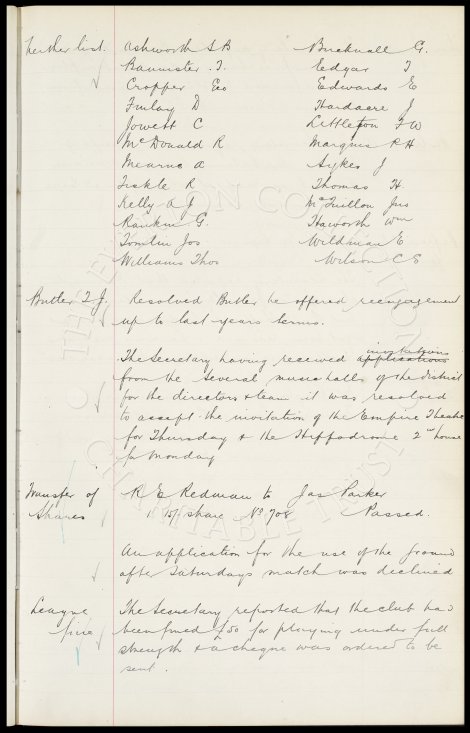 further list. Ashworth S B Bucknall G.
Bannister. T. Edgar T
Cropper Geo Edwards E
Finlay D Hardacre J
Jowett C Littleton F W
McDonald R Marquis P H
Mearns A Sykes J
Tickle R Thomas H.
Kelly A J McQuillon Jno
Rankin G. Haworth Wm
Tomlin Jos Wildman E
Williams Thos Wilson C E
Butler T J. Resolved Butler be offered reengagement
up to last years terms.
invitations
The Secretary having received applications
from the several music halls of the district
for the directors & team it was resolved
to accept the invitation of the Empire Theatre
for Thursday & the Hippodrome 2nd house
for Monday
Transfer of R E Redman to Jas Parker
Shares 1 15/- share No 708 Passed.
An application for the use of the ground
after Saturdays match was declined
League The Secretary reported that the club had
fine been fined £50 for playing under full
strength & a cheque was ordered to be
sent.
THE EVERTON COLLECTION
CHARITABLE TRUST